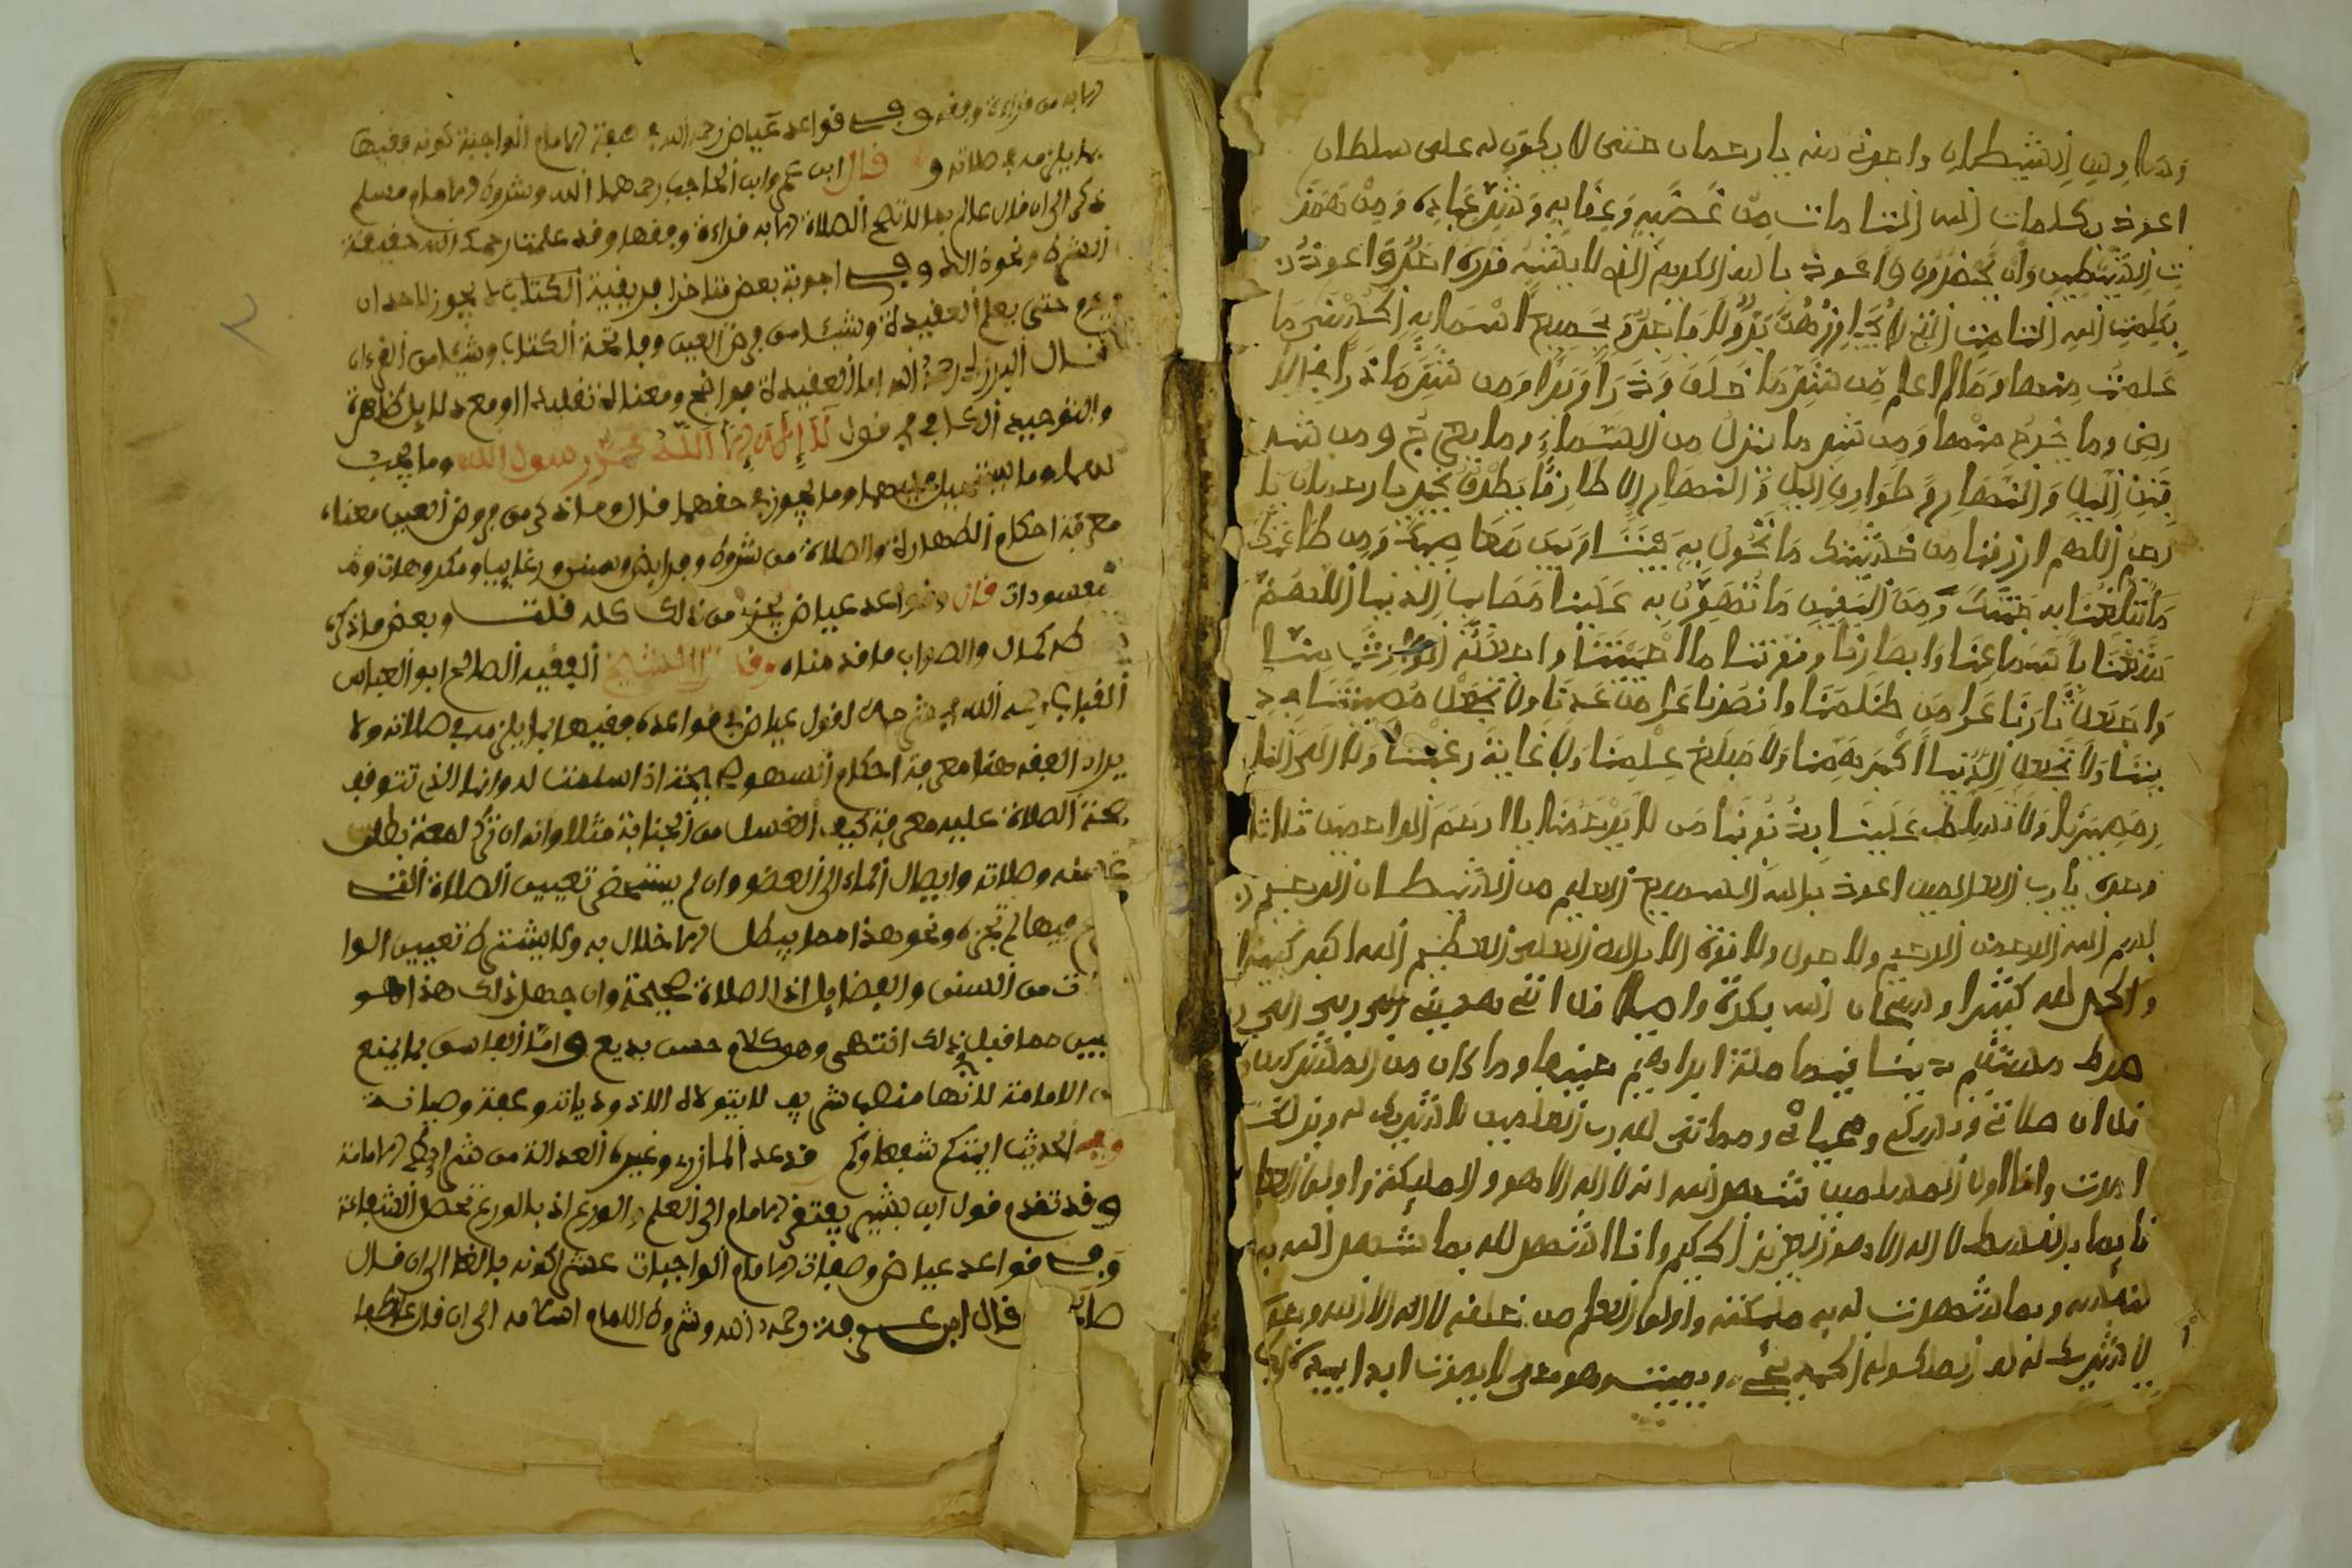 وساوس الشيطان واعوذ منه يا رحمان حتى لا يكون له على سلطان
اعوذ بكلمات الله التامات من غضبه وعقابه وشر عباده ومن همز
ت الشيطين وان يحضرون واعوذ بالله الكريم
بكلمت الله التامت التي لا يجاوزهن بر ولا فاجر وبجميع اسمايه الحسنى ما
علمت منها وما لم اعلم من شر ما خلق وذرا وبرا ومن شر ما ذرا في الا
رض وما يخرج منها ومن شر ما ينزل من السماء وما يعرج ومن شر
فتن اليل والنهار و طوارق اليل والنهار الا طارقا يطرق بخير يا رحمان يا
رحيم اللهم ارزقنا من خشيتك ما تحول به بيننا وبين معاصيك ومن طاعتك
ما تبلغنا به جنتك ومن اليقين ما تهون به علينا مصايب الدنيا اللهم
متعنا باسماعنا وابصارنا وقوتنا ما احييتنا واجعله الوارث منا
واجعل ثارنا على من ظلمنا وانصرنا على من عادانا ولا تجعل مصيبتنا في د
يننا ولا تجعل الدنيا اكبر همنا ولا مبلغ علمنا ولا غاية رغبتنا ولا الى النار
مصيرنا ولا تسلط علينا بذنوبنا من لا يرحمنا يا ارحم الراحمين ثلاثا
وعدة يا رب العالمين اعوذ بالله السميع العليم من الشيطان الرجيم
بسم الله الرحمن الرحيم ولا حول ولا قوة الا بالله العلي العظيم الله اكبر كبيرا
والحمد لله كثيرا وسبحان الله بكرة واصيلا قل انني هديني ربي الى
صرط مستقيم دينا قيما ملة ابراهيم حنيفا وما كان من المشركين
قل ان صلاتي ونسكي ومحياي ومماتي لله رب العلمين لا شريك له وبذلك
امرت وانا اول المسلمين شهد الله انه لا اله الا هو والمليكة واولوا العلم
قايما بالقسط لا اله الا هو العزيز الحكيم وانا اشهد لله بما شهد الله به
لنفسه وبما شهدت له به مليكته واولوا العلم من خلقه لا اله الا الله وحده
لا شريك له له الملك وله الحمد يحي ويميت وهو حي لا يموت ابدا بيده
الا به من قراءة وفقه وفي قواعد عياض رحمه الله في صفة الامام الواجبة كونه فقيها
بما يلزمه في صلاته و قال ابن وابن الحاجب رحمهما الله وشروط الامام مسلم
ذكر الى ان قال عالم بما لا تصح الصلاة الا به قراءة وفقها وقد علمت رحمك الله حقيقة
الشرط ونحوه وفي اجوبة بعض متاخرا فريقية الكتاب لا يجوز لاحد ان
يؤم حتى يعلم العقيدة وشيئا من فرض العين وفاتحة الكتاب وشيئا من القرءان
قال البرزلي رحمه الله اما العقيدة فواضح ومعناه تقليدا او مع دلايل ظاهرة
والتوحيد الكافي في قول لا إله إلا الله محمد رسول الله وما يجب
لهما وما يستحيل عليهما وما يجوز في حقهما قال وما ذكر من فروض العين معناه
معرفة احكام الطهارة والصلاة من شروط وفرايض وسنن ورغايب ومكروهات و
مفسودات قال وقواعد عياض تجزء من ذلك كله قلت وبعض ما ذكره
كله كمال والصواب ما قدمناه وقال الشيخ الفقيه الصالح ابو العباس
القباب رحمه الله في شرحه لقول عياض في قواعده فقيها بما يلزمه في صلاته ولا
يراد الفقه هنا معرفة احكام السهو اذا سلمت له وانما الذي تتوقف
صحة الصلاة عليه معرفة كيف الغسل من الجنابة مثلا وانه ان ترك لمعة بطل
غسله وصلاته وايصال الماء الى العضو وان لم تعيين الصلاة التي
فيها لم تجزه ونحو هذا مما يبطل الاخلال به ولا يشترط تعيين الوا
ت من السنن والفضايل اذ الصلاة صحيحة وان جهل ذلك هذا هو
يبين مما قبل ذلك انتهى وهو كلام حسن بديع واما الفاسق فانه يمنع
من الامامة لانها منصب شريف لا يتولاه الا ذو ديانة وعفة وصيانة
وفي الحديث ايمتكم شفعاؤكم قد عد المازري وغيره العدالة من شرايط الامامة
وقد تقدم قول ابن بشير يفتقر الامام الى العلم والورع اذ بالورع تحصل الشفاعة
وفي قواعد عياض وصفات الامام الواجبات عشر كونه بالغا الى ان قال
قال ابن عرفة رحمه الله وشروط الامام اسلامه الى ان قال